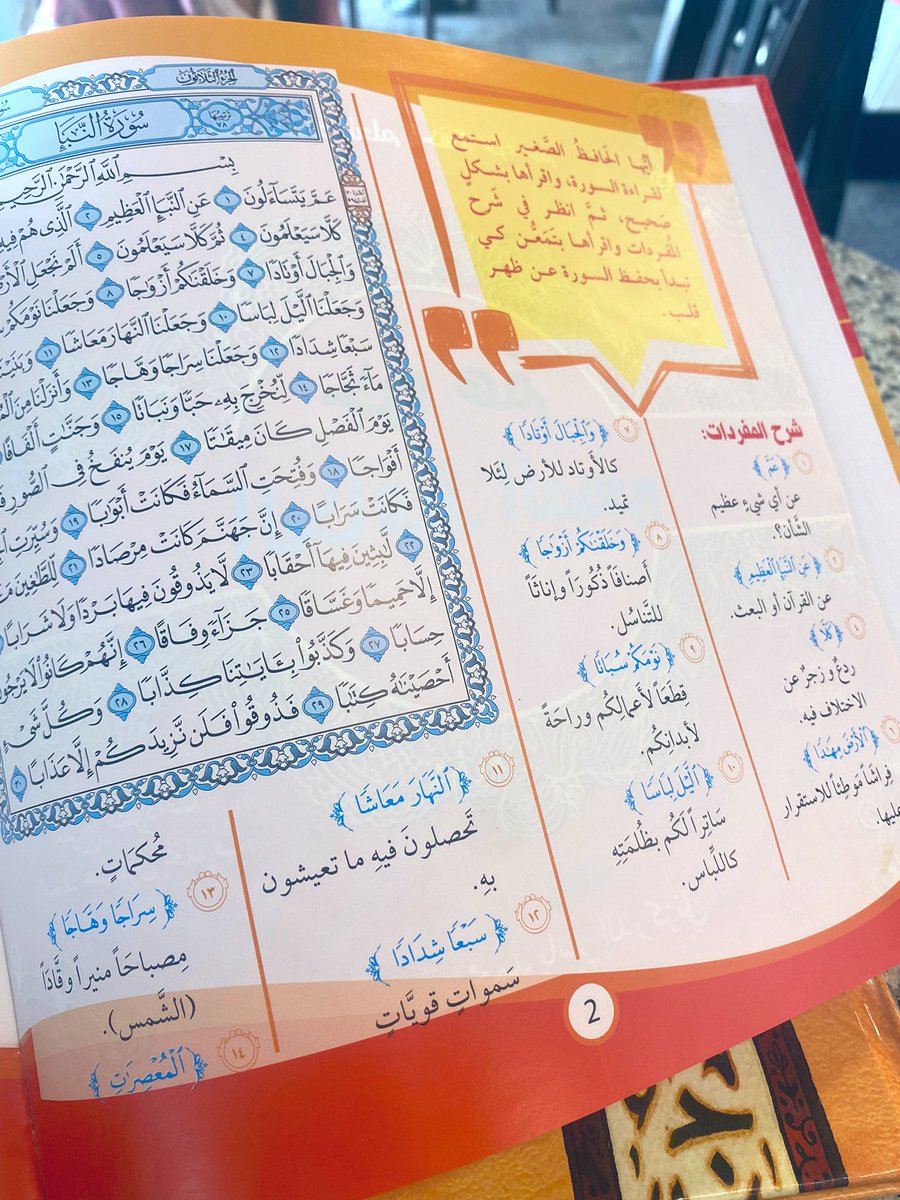 الجزء الثلاثون
سورة النبإ
ترتيبها ٧٨
بِسْمِ ٱللَّهِ ٱلرَّحْمَٰنِ ٱلرَّحِيمِ
عَمَّ يَتَسَآءَلُونَ ١ عَنِ ٱلنَّبَإِ ٱلْعَظِيمِ ٢ ٱلَّذِى هُمْ فِيهِ
كَلَّا سَيَعْلَمُونَ ٤ ثُمَّ كَلَّا سَيَعْلَمُونَ ٥ أَلَمْ نَجْعَلِ
وَٱلْجِبَالَ أَوْتَادًا ٧ وَخَلَقْنَٰكُمْ أَزْوَٰجًا ٨ وَجَعَلْنَا نَوْمَكُمْ
وَجَعَلْنَا ٱلَّيْلَ لِبَاسًا ١٠ وَجَعَلْنَا ٱلنَّهَارَ مَعَاشًا ١١
سَبْعًا شِدَادًا ١٢ وَجَعَلْنَا سِرَاجًا وَهَّاجًا ١٣ وَأَنزَلْنَا مِنَ
مَآءً ثَجَّاجًا ١٤ لِّنُخْرِجَ بِهِۦ حَبًّا وَنَبَاتًا ١٥ وَجَنَّٰتٍ أَلْفَافًا
يَوْمَ ٱلْفَصْلِ كَانَ مِيقَٰتًا ١٧ يَوْمَ يُنفَخُ فِى ٱلصُّورِ
أَفْوَاجًا ١٨ وَفُتِحَتِ ٱلسَّمَآءُ فَكَانَتْ أَبْوَٰبًا ١٩ وَسُيِّرَتِ
فَكَانَتْ سَرَابًا ٢٠ إِنَّ جَهَنَّمَ كَانَتْ مِرْصَادًا ٢١ لِّلطَّٰغِينَ
٢٢ لَّٰبِثِينَ فِيهَآ أَحْقَابًا ٢٣ لَّا يَذُوقُونَ فِيهَا بَرْدًا وَلَا شَرَابًا
إِلَّا حَمِيمًا وَغَسَّاقًا ٢٥ جَزَآءً وِفَاقًا ٢٦ إِنَّهُمْ كَانُوا۟ لَا يَرْجُونَ
حِسَابًا ٢٧ وَكَذَّبُوا۟ بِـَٔايَٰتِنَا كِذَّابًا ٢٨ وَكُلَّ شَىْءٍ
أَحْصَيْنَٰهُ كِتَٰبًا ٢٩ فَذُوقُوا۟ فَلَن نَّزِيدَكُمْ إِلَّا عَذَابًا ٣٠
أيُّها الحَافِظُ الصَّغير استمع
لقراءة السورة، واقرأها بشكلٍ
صَحيح، ثمَّ انظر في شَرح
المُفردات واقرأها بتَمَعُّن كي
تبدأ بحفظ السورة عن ظهر
قلب.
شرح المفردات:
١ ﴿عَمَّ﴾
عن أي شيءٍ عظيم
الشَّأن؟.
٢ ﴿عَنِ ٱلنَّبَإِ ٱلْعَظِيمِ﴾
عن القرآن أو البعث.
﴿كَلَّا﴾
ردعٌ و زجرٌ عن
الاختلاف فيه.
٦ ﴿ٱلْأَرْضَ مِهَٰدًا﴾
فِراشاً مُوَطَّئاً للاستقرار
عليها.
٧ ﴿وَٱلْجِبَالَ أَوْتَادًا﴾
كالأوتاد للأرض لِئَلا
تميد.
٨ ﴿وَخَلَقْنَٰكُمْ أَزْوَٰجًا﴾
أصنافاً ذُكُوراً وإناثاً
للتَّناسُل.
٩ ﴿نَوْمَكُمْ سُبَاتًا﴾
قطعَاً لأعمالِكُم وراحَةً
لأبدانِكُم.
١٠ ﴿ٱلَّيْلَ لِبَاسًا﴾
سَاتِراً لَكُم بظُلمَتِهِ
كاللِّباس.
١١ ﴿ٱلنَّهَارَ مَعَاشًا﴾
تَحصلونَ فيهِ ما تعيشون
بِهِ.
١٢ ﴿سَبْعًا شِدَادًا﴾
سَمواتٍ قويَّاتٍ
مُحكمَاتٍ.
١٣ ﴿سِرَاجًا وَهَّاجًا﴾
مِصباحَاً منيراً وقَّادَاً
(الشَّمس).
١٤ ﴿ٱلْمُعْصِرَٰتِ﴾
2